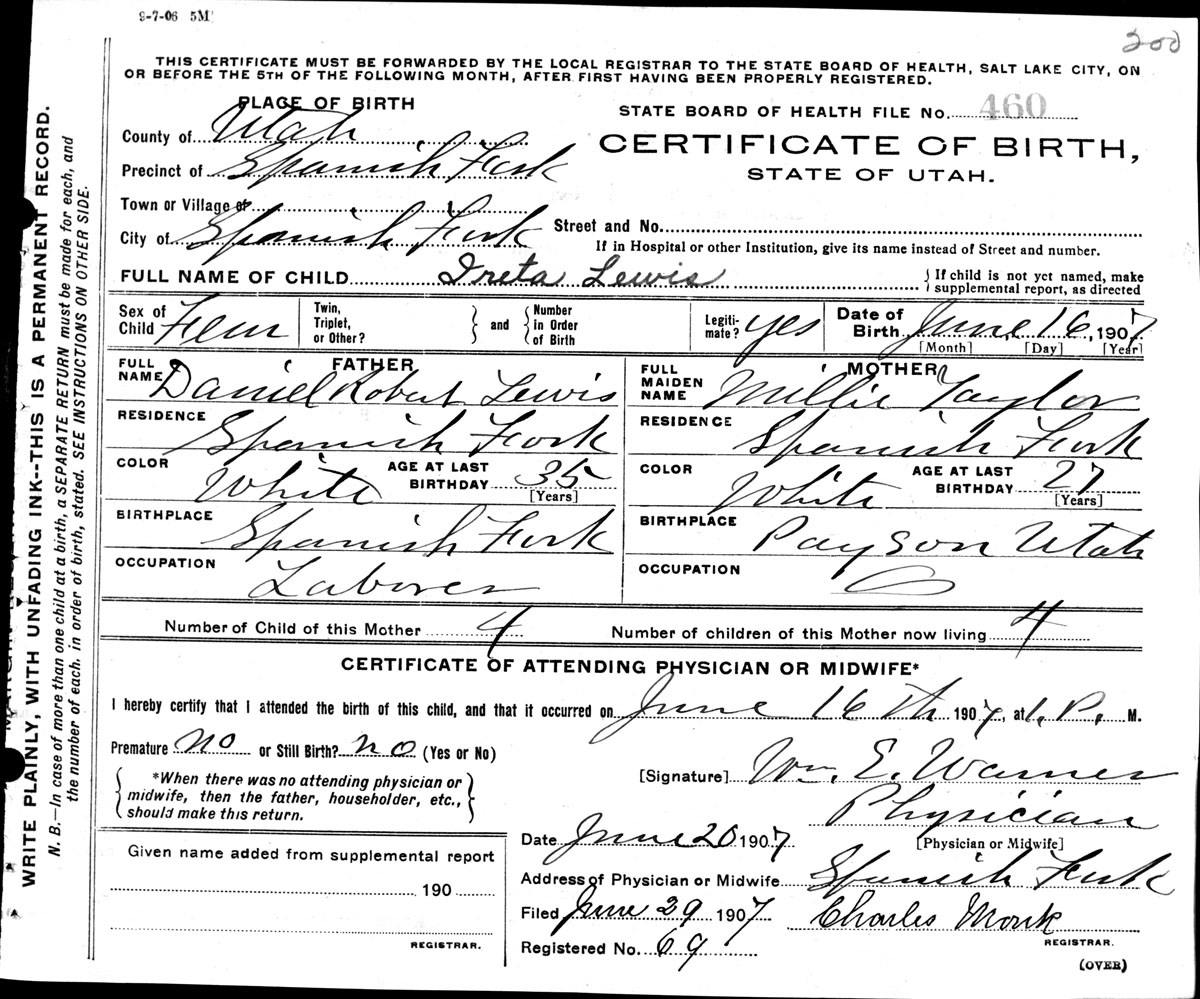 9-7-06 5M
200
THIS CERTIFICATE MUST BE FORWARDED BY THE LOCAL REGISTRAR TO THE STATE BOARD OF HEALTH, SALT LAKE CITY, ON
OR BEFORE THE 5TH OF THE FOLLOWING MONTH, AFTER FIRST HAVING BEEN PROPERLY REGISTERED.
PLACE OF BIRTH
STATE BOARD OF HEALTH FILE No. 460
County of Utah
CERTIFICATE OF BIRTH,
Precinct of Spanish Fork
STATE OF UTAH.
Town or Village of
City of Spanish Fork
Street and No.
If in Hospital or other Institution, give its name instead of Street and number.
FULL NAME OF CHILD Ireta Lewis
If child is not yet named, make
supplemental report, as directed
Sex of Child Fem
Twin, Triplet, or Other? and Number in Order of Birth
Legiti-mate? yes
Date of Birth June 16, 1907
[Month] [Day] [Year]
FATHER
FULL NAME Daniel Robert Lewis
RESIDENCE Spanish Fork
COLOR White
AGE AT LAST BIRTHDAY 35
[Years]
BIRTHPLACE Spanish Fork
OCCUPATION Laborer
MOTHER
FULL MAIDEN NAME Millie Taylor
RESIDENCE Spanish Fork
COLOR White
AGE AT LAST BIRTHDAY 27
[Years]
BIRTHPLACE Payson Utah
OCCUPATION
Number of Child of this Mother 4
Number of children of this Mother now living 4
CERTIFICATE OF ATTENDING PHYSICIAN OR MIDWIFE*
I hereby certify that I attended the birth of this child, and that it occurred on June 16th 1907, at 1. P. M.
Premature no or Still Birth? no (Yes or No)
*When there was no attending physician or
midwife, then the father, householder, etc.,
should make this return.
[Signature] Wm. E. Warner
Physician
[Physician or Midwife]
Date June 20 1907
Address of Physician or Midwife Spanish Fork
Filed June 29 1907
Charles Monk
REGISTRAR.
Registered No. 69
(OVER)
Given name added from supplemental report
190
REGISTRAR.
WRITE PLAINLY, WITH UNFADING INK--THIS IS A PERMANENT RECORD.
N. B.—In case of more than one child at a birth, a SEPARATE RETURN must be made for each, and
the number of each. in order of birth, stated. SEE INSTRUCTIONS ON OTHER SIDE.